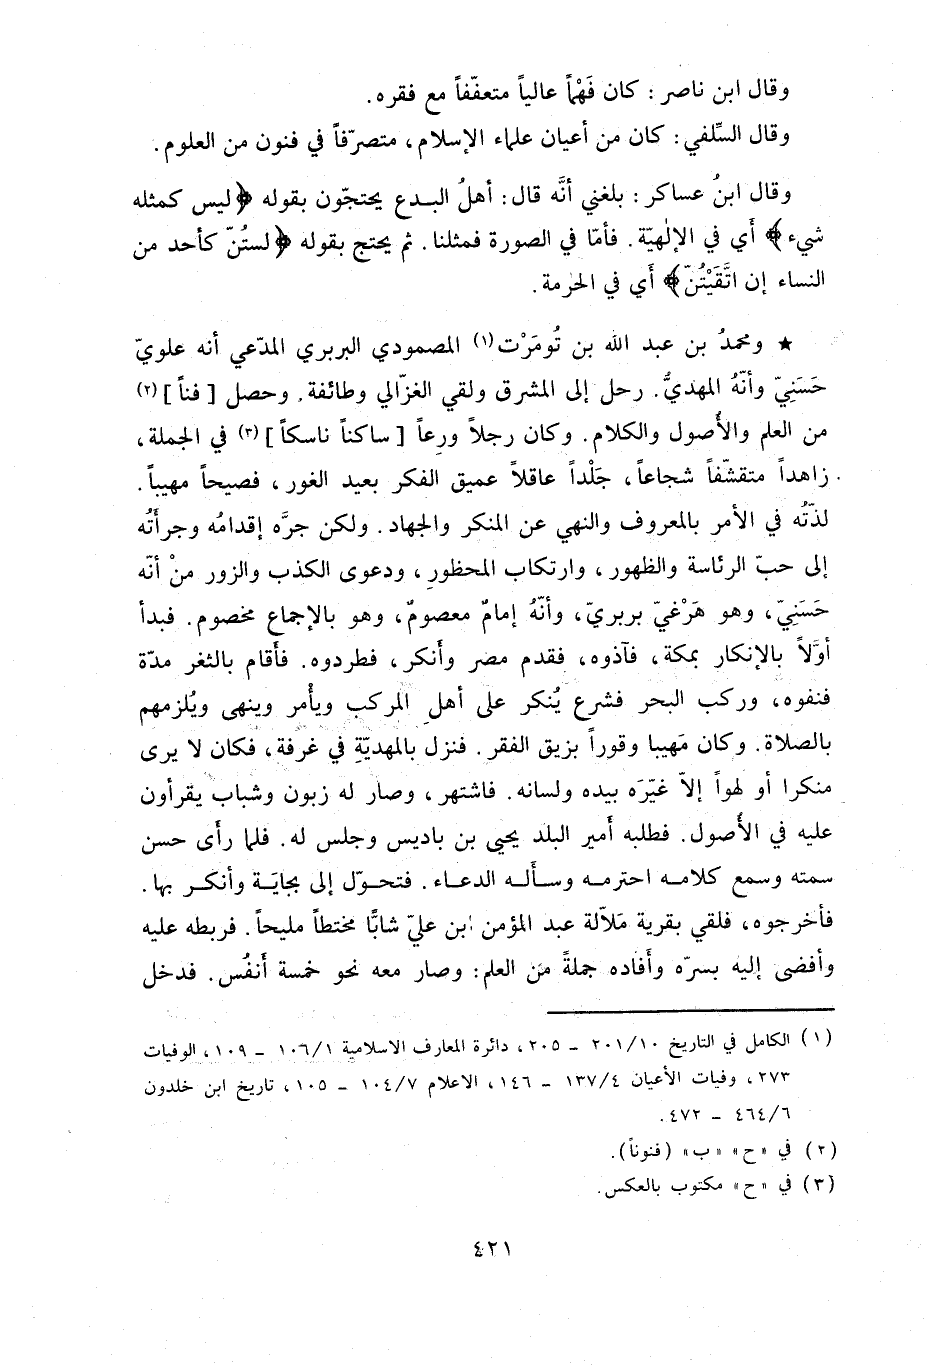 وقال ابن ناصر : كان فَهْماً عالياً متعفّفاً مع فقره.
وقال السِّلفي : كان من أعيان علماء الإسلام، متصرّفاً في فنون من العلوم.
وقال ابنُ عساكر : بلغني أنَّه قال : أهلُ البدع يحتجّون بقوله ﴿ليس كمثله
شيء﴾ أي في الإلهيّة. فأمّا في الصورة فمثلنا. ثم يحتج بقوله ﴿لستُنّ كأحد من
النساء إن اتَّقَيْتُنّ﴾ أي في الحرمة.
★ ومحمدُ بن عبد الله بن تُومَرْت (١) المصمودي البربري المدّعي أنه علويّ
حَسَنِيّ وأنّهُ المهديُّ. رحل إلى المشرق ولقي الغزّالي وطائفة. وحصل [فناً] (٢)
من العلم والأصول والكلام. وكان رجلاً ورعاً [ساكناً ناسكاً] (٣) في الجملة،
زاهداً متقشّفاً شجاعاً، جَلْداً عاقلاً عميق الفكر بعيد الغور، فصيحاً مهيباً.
لذّتُه في الأمر بالمعروف والنهي عن المنكر والجهاد. ولكن جرَّه إقدامُه وجرأتُه
إلى حبّ الرئاسة والظهور، وارتكاب المحظور، ودعوى الكذب والزور منْ أنّه
حَسَنِيّ، وهو هَرْغيّ بربريّ، وأنّهُ إمامٌ معصومٌ، وهو بالإجماع مخصوم. فبدأ
أوَّلاً بالإنكار بمكة، فآذوه، فقدم مصر وأنكر، فطردوه. فأقام بالثغر مدّة
فنفوه، وركب البحر فشرع يُنكر على أهل المركب ويأْمر وينهى ويُلزمهم
بالصلاة. وكان مَهيبا وقوراً بزيق الفقر. فنزل بالمهديّةِ في غرفة، فكان لا يرى
منكرا أو لهواً إلاّ غيّرَه بيده ولسانه. فاشتهر، وصار له زبون وشباب يقرأون
عليه في الأصول. فطلبه أمير البلد يحيى بن باديس وجلس له. فلما رأى حسن
سمته وسمع كلامه احترمه وسأله الدعاء. فتحوّل إلى بجايَة وأنكر بها.
فأخرجوه، فلقي بقرية مَلاّلة عبد المؤمن ابن عليّ شابًّا مختطاً مليحاً. فربطه عليه
وأفضى إليه بسرّه وأفاده جملةً من العلم : وصار معه نحو خمسة أنفُس. فدخل
(١) الكامل في التاريخ ٢٠١/١٠ - ٢٠٥، دائرة المعارف الاسلامية ١٠٦/١ - ١٠٩، الوفيات
٢٧٣، وفيات الأعيان ١٣٧/٤ - ١٤٦، الاعلام ١٠٤/٧ - ١٠٥، تاريخ ابن خلدون
٤٦٤/٦ - ٤٧٢.
(٢) في «ح» «ب» (فنوناً).
(٣) في «ح» مكتوب بالعكس.
٤٢١